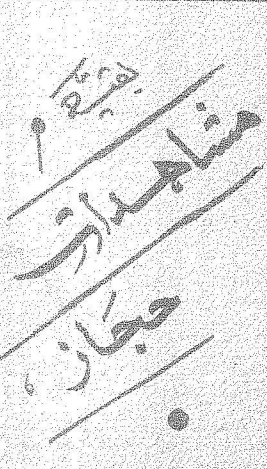 بقیہ
مشاہدات
حجاز